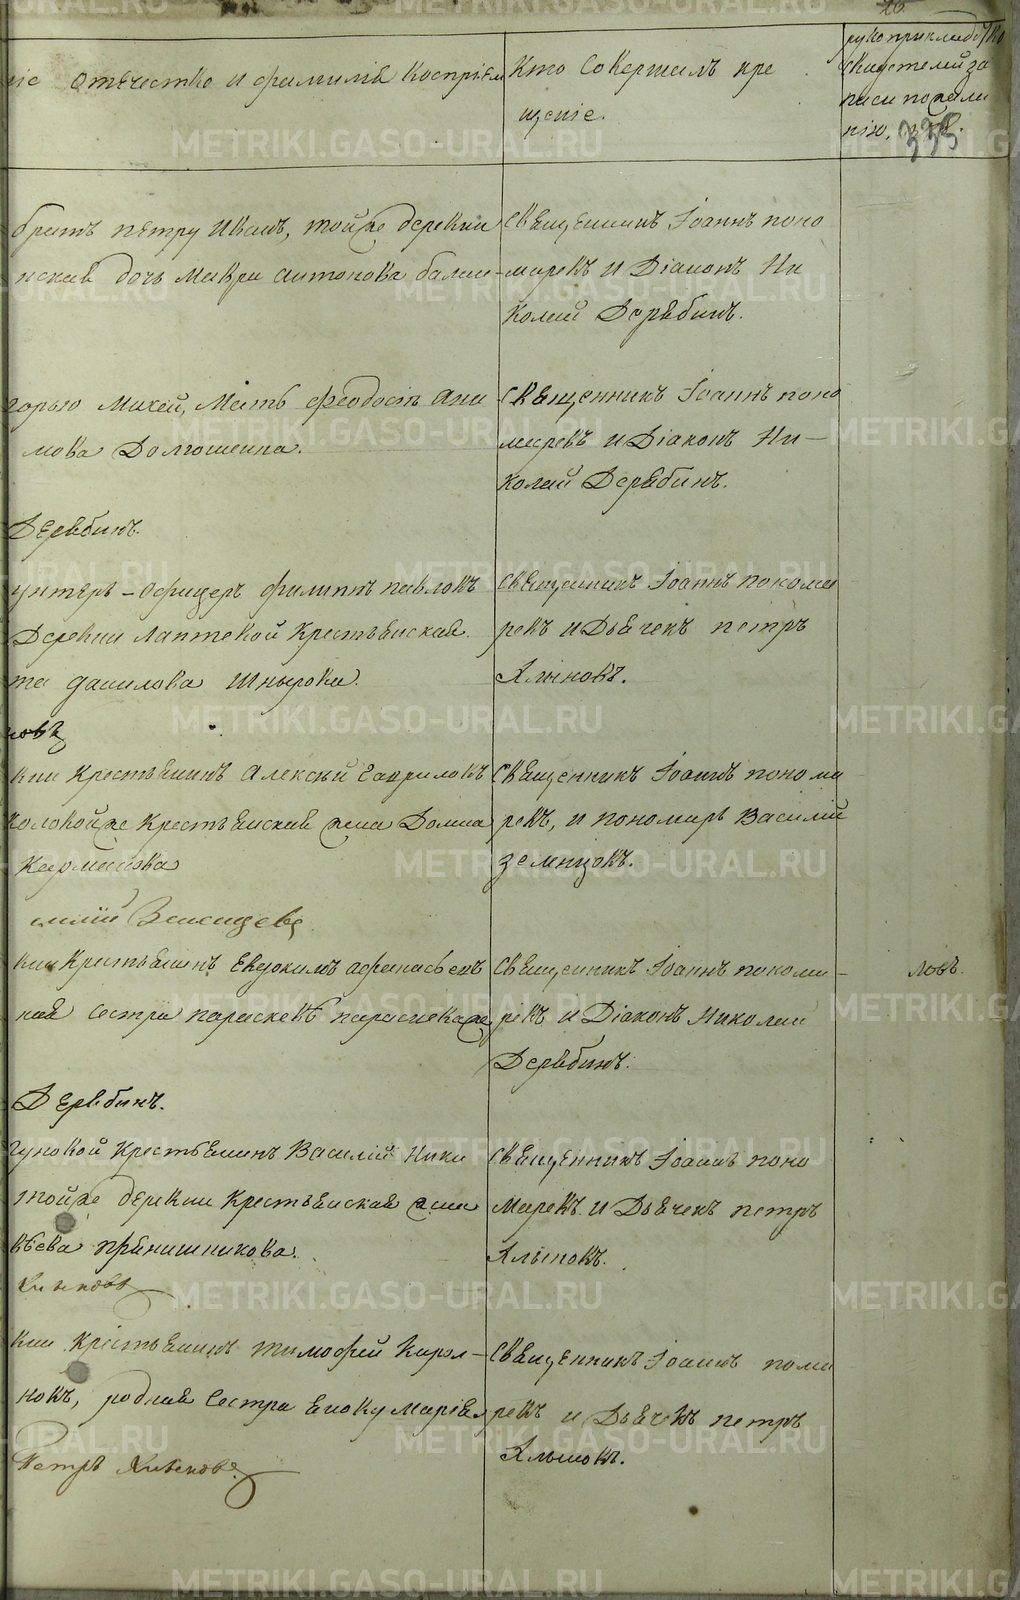 26.
ніе отечество и фамиліѧ Воспріем
Кто Совершалъ кре
щеніе.
рукоприкладство
свидетелей за
писи по жела
нію.
335
братъ Петру Иванъ, тойже деревни
нская дочь Мавра Антонова
Священникъ Іоаннъ поно
маревъ и Діаконъ Ни
колай Дерѧбинъ.
горью Михей, Мать Феодосія
мова Долгошеина.
Священникъ Іоаннъ поно
маревъ и Діаконъ Ни-
колай Дерѧбинъ.
Дерѧбинъ.
унтеръ-Офицеръ Филиппъ Павловъ
Деревни Лаптевой Крестьѧнская
та Данилова Шнырова.
Священникъ Іоаннъ понома
ревъ и Дьѧчекъ петръ
новъ
вни Крестьѧнинъ Алексѣй Гавриловъ
Крестьѧнская жена Домна
Священникъ Іоаннъ понома
ревъ, и пономарь Василій
Земнцовъ.
вни Крестьѧнинъ Евдокимъ Афанасьевъ
ная сестра Параскева
Священникъ Іоаннъ понома-
ревъ и Діаконъ Николай
Дерѧбинъ.
ловъ.
Дерѧбинъ.
гуновой Крестьѧнинъ Василій Ники
тойже деревни Крестьѧнская жена
вѣева Прѧнишникова.
Священникъ Іоаннъ поно
маревъ и Дьѧчекъ петръ
вни Крестьѧнинъ Тимофей Кирил-
новъ, родная Сестра
Священникъ Іоаннъ пома
ревъ и Дьѧчекъ петръ
Петръ
METRIKI.GASO-URAL.RU